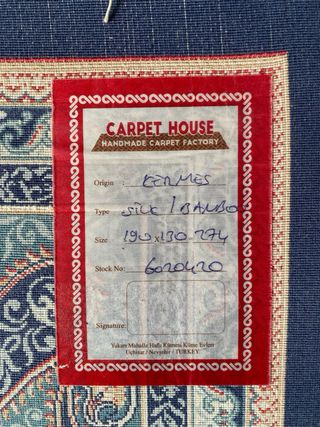 CARPET HOUSE
HANDMADE CARPET FACTORY
Origin : KERMES
Type : SILK / BAMBOO
Size : 190x130 274
Stock No: 6020420
Signature:
Yukarı Mahalle Halk Kümesi Küme Evleri
Uçhisar / Nevşehir / TURKEY